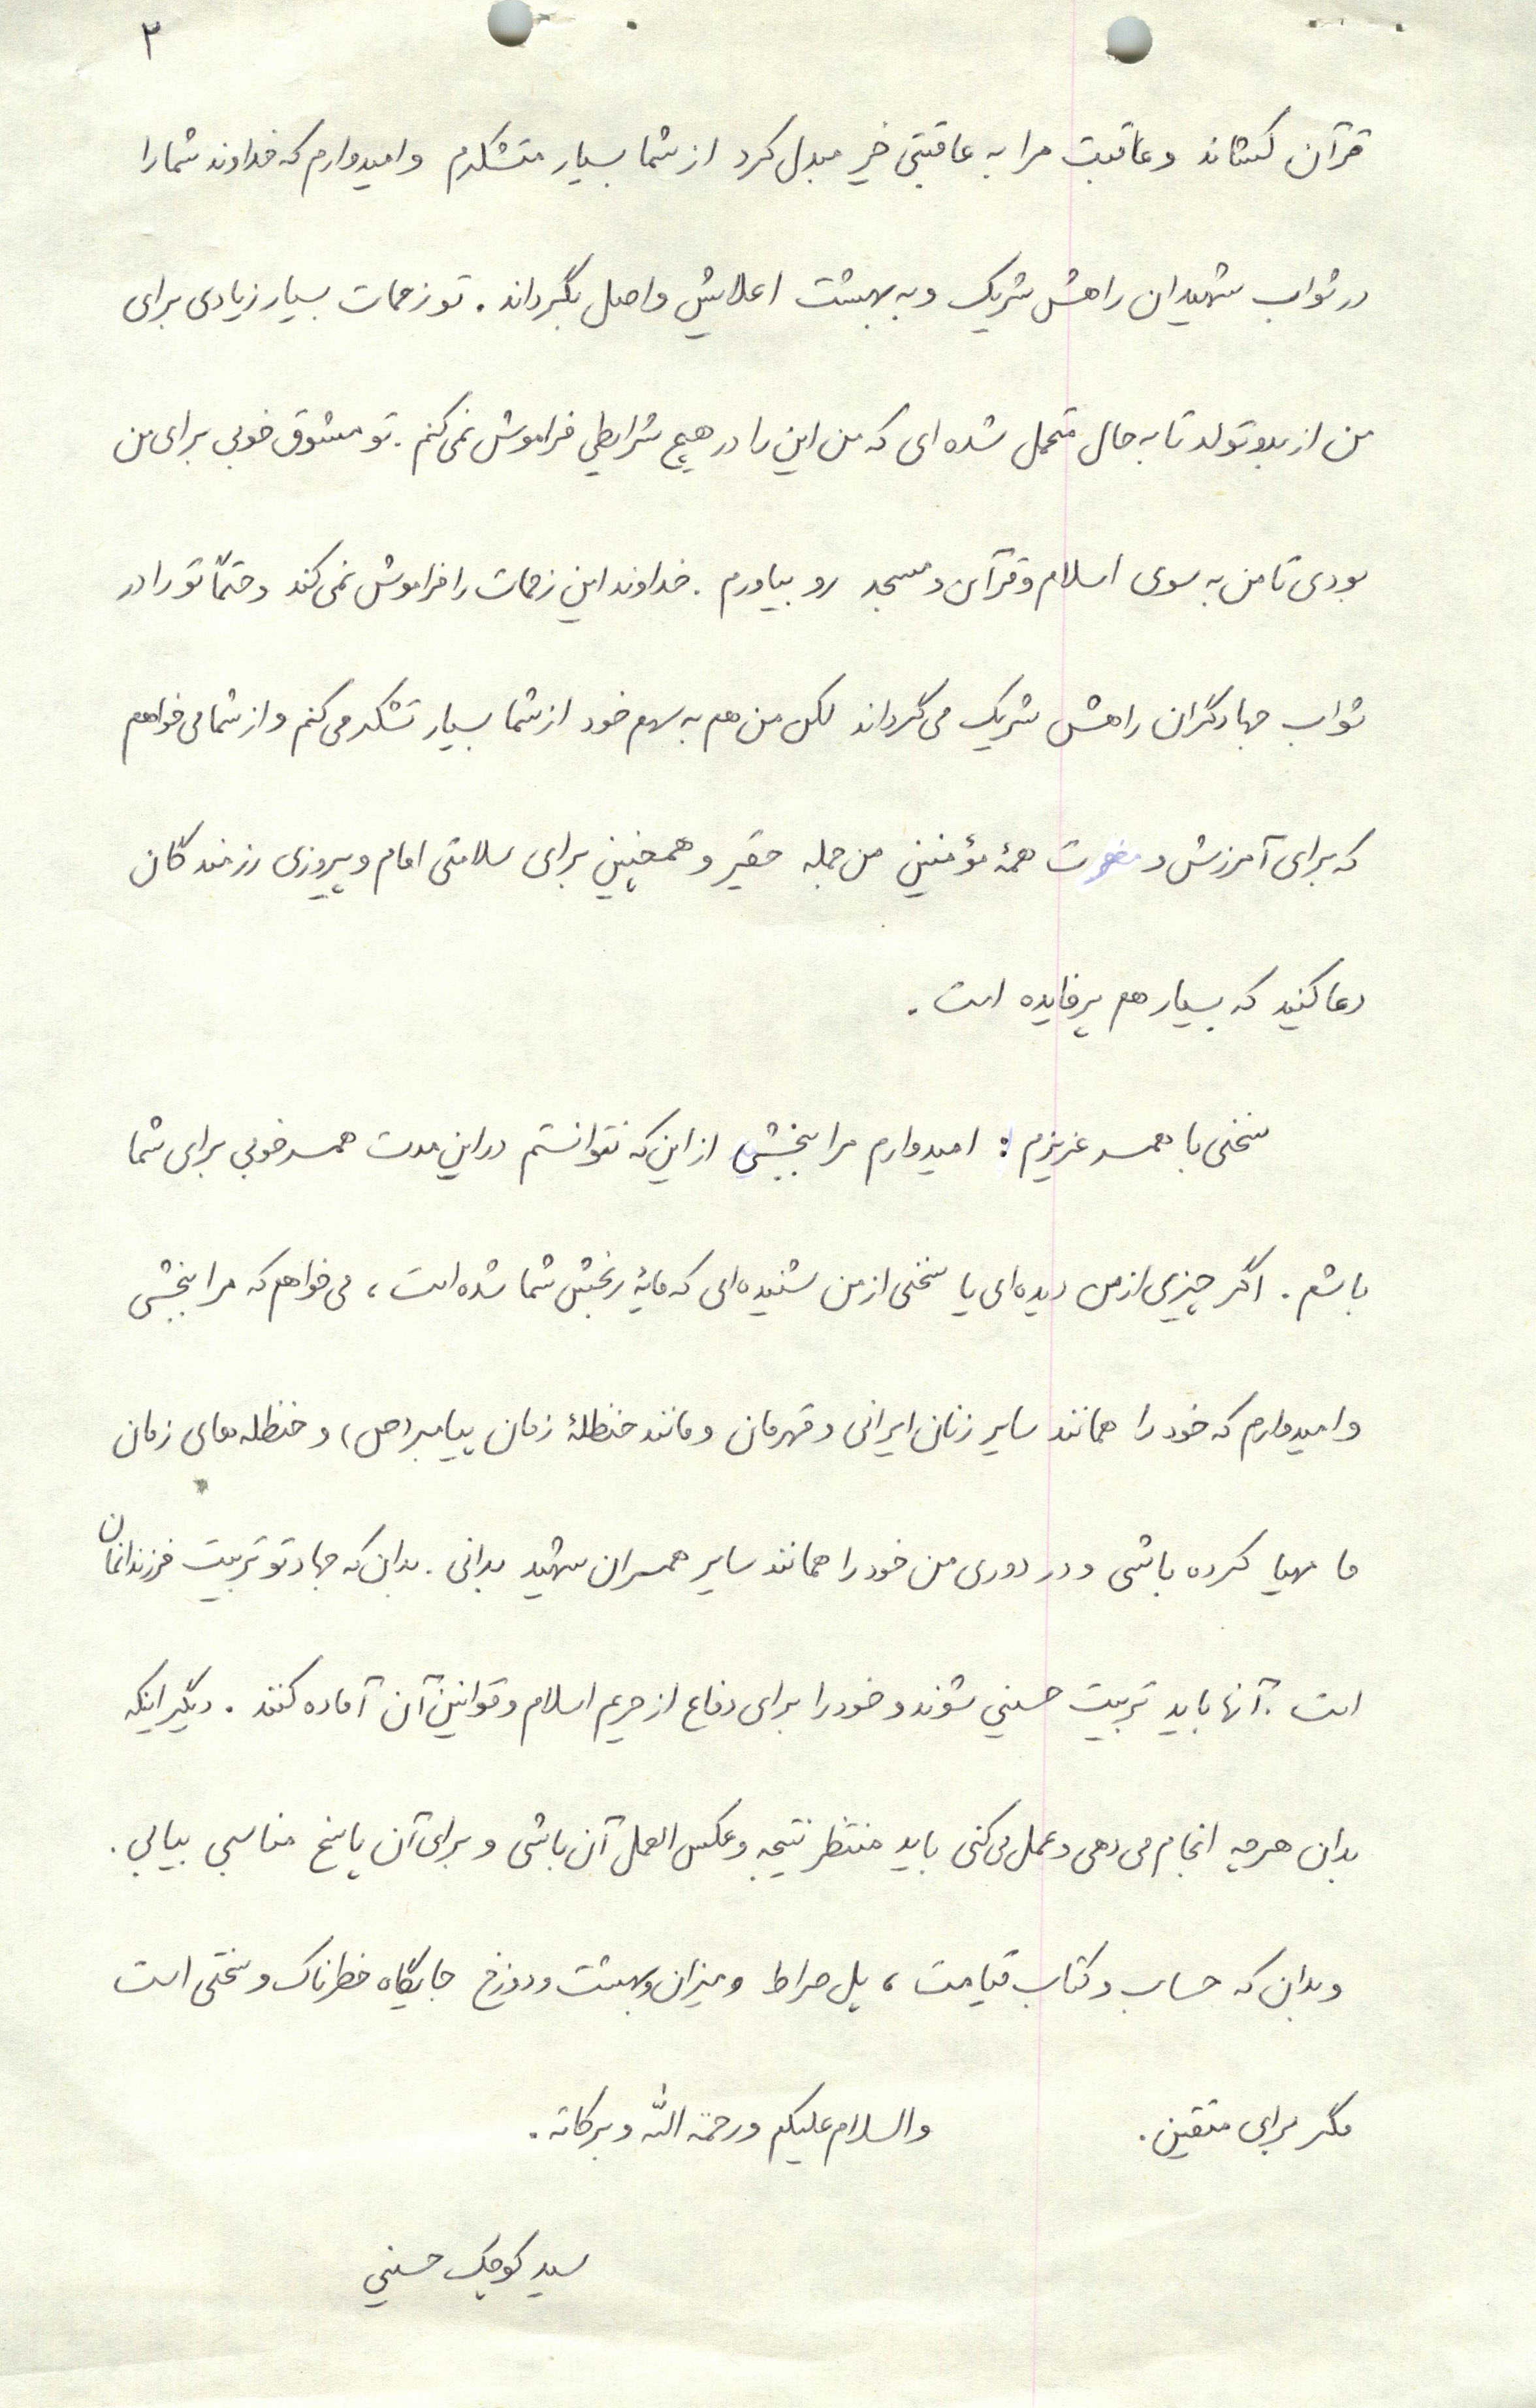 ۲
قرآن کشاند و عاقبت مرا به عاقبتی خیر مبدل کرد از شما بسیار متشکرم و امیدوارم که خداوند شما را
در ثواب شهیدان راهش شریک و به بهشت اعلایش واصل بگرداند. تو زحمات بسیار زیادی برای
من از بدو تولد تا به حال متحمل شده ای که من این را در هیچ شرایطی فراموش نمی کنم. تو مشوق خوبی برای من
بودی تا من به سوی اسلام و قرآن و مسجد رو بیاورم. خداوند این زحمات را فراموش نمی کند و حتماً تو را در
ثواب جهادگران راهش شریک می گرداند لکن من هم به سهم خود از شما بسیار تشکر می کنم و از شما می خواهم
که برای آمرزش و مغفرت همهٔ مؤمنین من جمله حقیر و همچنین برای سلامتی امام و پیروزی رزمندگان
دعا کنید که بسیار هم پرفایده است.
سخنی با همسر عزیزم: امیدوارم مرا ببخشی از این که نتوانستم در این مدت همسر خوبی برای شما
باشم. اگر چیزی از من دیده ای یا سخنی از من شنیده ای که مایهٔ رنجش شما شده است، می خواهم که مرا ببخشی
و امیدوارم که خود را همانند سایر زنان ایرانی و قهرمان و مانند حنظلهٔ زمان پیامبر(ص) و حنظله های زمان
ما مهیا کرده باشی و در دوری من خود را همانند سایر همسران شهید بدانی. بدان که جهاد تو تربیت فرزندانمان
است. آنها باید تربیت حسینی شوند و خود را برای دفاع از حریم اسلام و قوانین آن آماده کنند. دیگر اینکه
بدان هرچه انجام می دهی و عمل می کنی باید منتظر نتیجه و عکس العمل آن باشی و برای آن پاسخ مناسبی بیابی.
و بدان که حساب و کتاب قیامت، پل صراط و میزان و بهشت و دوزخ جایگاه خطرناک و سختی است
مگر برای متقین. والسلام علیکم ورحمة الله و برکاته.
سید کوچک حسینی